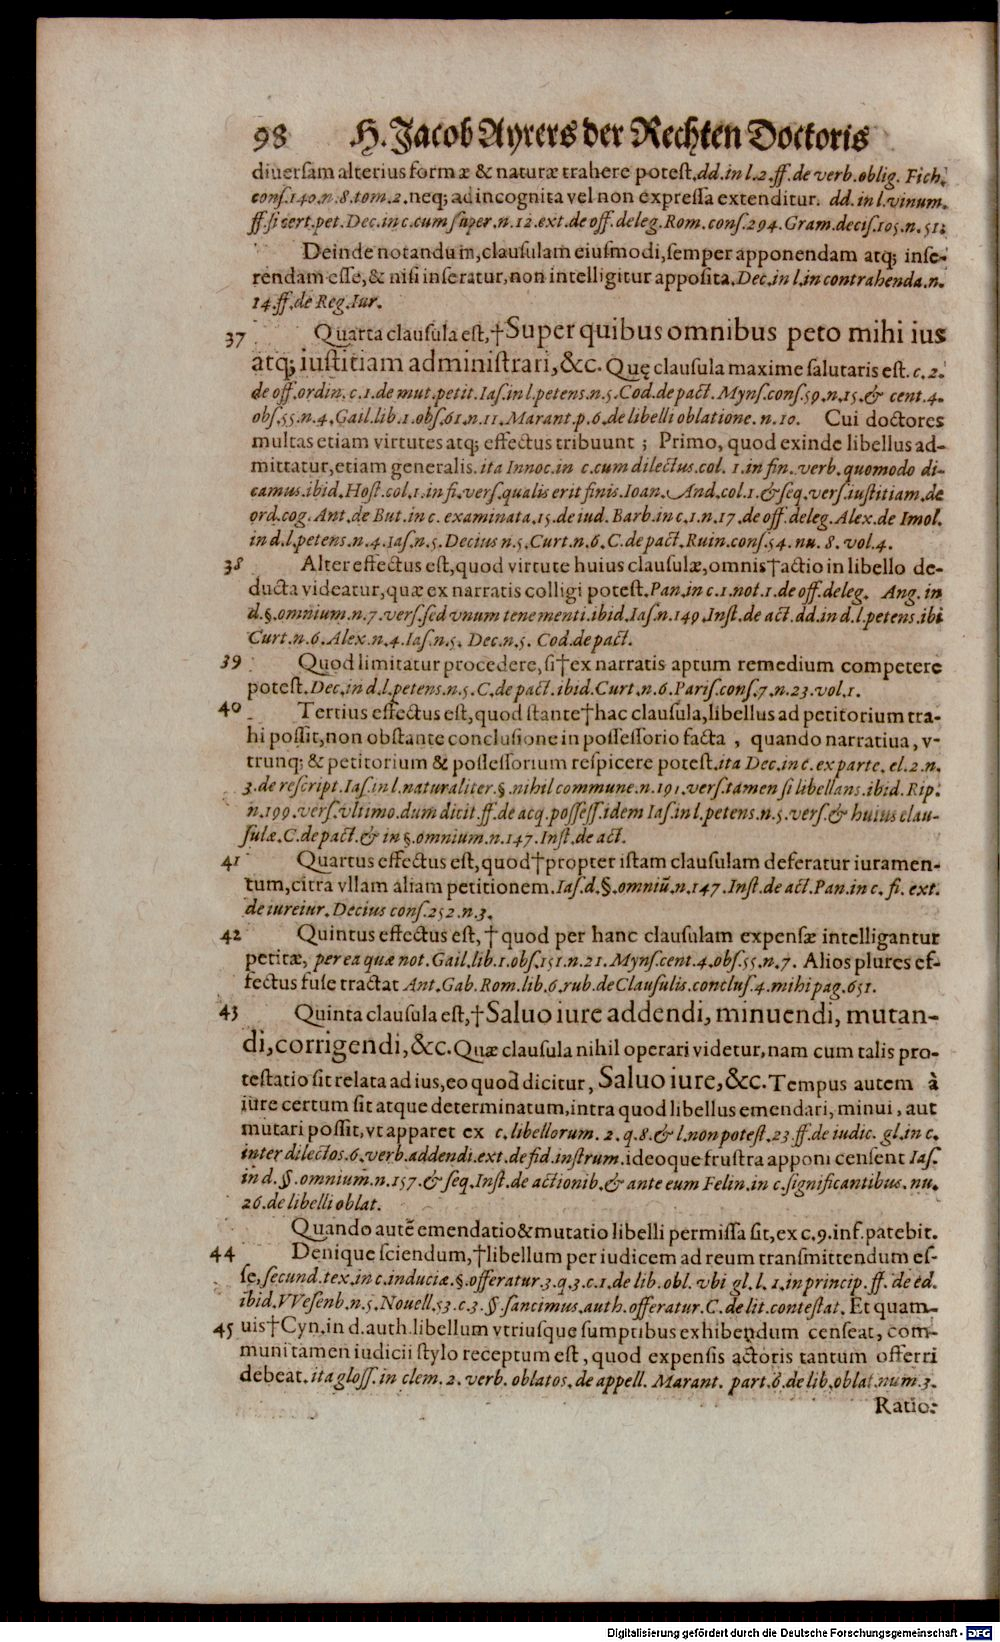 98 H. Jacob Ayrers der Rechten Doctoris
diuersam alterius formæ & naturæ trahere potest. dd. in l. 2. ff. de verb. oblig. Fich.
cons. 140. n. 8. tom. 2. neq; ad incognita vel non expressa extenditur. dd. in l. vinum.
ff. si cert. pet. Dec. in c. cum super. n. 12. ext. de off. deleg. Rom. cons. 294. Gram. decis. 105. n. 51.
Deinde notandum, clausulam eiusmodi, semper apponendam atq; inse-
rendam esse, & nisi inseratur, non intelligitur apposita. Dec. in l. in contrahenda. n.
14. ff. de Reg. Iur.
37 Quarta clausula est, †Super quibus omnibus peto mihi ius
atq; iustitiam administrari, &c. Quę clausula maxime salutaris est. c. 2.
de off. ordin. c. 1. de mut. petit. Ias. in l. petens. n. 5. Cod. de pact. Myns. cons. 59. n. 15. & cent. 4.
obs. 55. n. 4. Gail. lib. 1. obs. 61. n. 11. Marant. p. 6. de libelli oblatione. n. 10. Cui doctores
multas etiam virtutes atq; effectus tribuunt ; Primo, quod exinde libellus ad-
mittatur, etiam generalis. ita Innoc. in c. cum dilectus. col. 1. in fin. verb. quomodo di-
camus. ibid. Host. col. 1. in fi. vers. qualis erit finis. Ioan. And. col. 1. & seq. vers. iustitiam. de
ord. cog. Ant. de But. in c. examinata. 15. de iud. Barb. in c. 1. n. 17. de off. deleg. Alex. de Imol.
in d. l. petens. n. 4. Ias. n. 5. Decius n. 5. Curt. n. 6. C. de pact. Ruin. cons. 54. nu. 8. vol. 4.
38 Alter effectus est, quod virtute huius clausulæ, omnis†actio in libello de-
ducta videatur, quæ ex narratis colligi potest. Pan. in c. 1. not. 1. de off. deleg. Ang. in
d. §. omnium. n. 7. vers. sed vnum tene menti. ibid. Ias. n. 149. Inst. de act. dd. in d. l. petens. ibi
Curt. n. 6. Alex. n. 4. Ias. n. 5. Dec. n. 5. Cod. de pact.
39 Quod limitatur procedere, si†ex narratis aptum remedium competere
potest. Dec. in d. l. petens. n. 5. C. de pact. ibid. Curt. n. 6. Paris. cons. 7. n. 23. vol. 1.
40 Tertius effectus est, quod stante†hac clausula, libellus ad petitorium tra-
hi possit, non obstante conclusione in possessorio facta , quando narratiua, v-
trunq; & petitorium & possessorium respicere potest. ita Dec. in c. ex parte. el. 2. n.
3. de rescript. Ias. in l. naturaliter. §. nihil commune. n. 191. vers. tamen si libellans. ibid. Rip.
n. 199. vers. vltimo. dum dicit. ff. de acq. possess. idem Ias. in l. petens. n. 5. vers. & huius clau-
sulæ. C. de pact. & in §. omnium. n. 147. Inst. de act.
41 Quartus effectus est, quod†propter istam clausulam deferatur iuramen-
tum, citra vllam aliam petitionem. Ias. d. §. omniū. n. 147. Inst. de act. Pan. in c. fi. ext.
de iureiur. Decius cons. 252. n. 3.
42 Quintus effectus est, † quod per hanc clausulam expensæ intelligantur
petitæ, per ea quæ not. Gail. lib. 1. obs. 151. n. 21. Myns. cent. 4. obs. 55. n. 7. Alios plures ef-
fectus fuse tractat Ant. Gab. Rom. lib. 6. rub. de Clausulis. conclus. 4. mihi pag. 651.
43 Quinta clausula est, †Saluo iure addendi, minuendi, mutan-
di, corrigendi, &c. Quæ clausula nihil operari videtur, nam cum talis pro-
testatio sit relata ad ius, eo quod dicitur, Saluo iure, &c. Tempus autem à
iure certum sit atque determinatum, intra quod libellus emendari, minui, aut
mutari possit, vt apparet ex c. libellorum. 2. q. 8. & l. non potest. 23. ff. de iudic. gl. in c.
inter dilectos. 6. verb. addendi. ext. de fid. instrum. ideoque frustra apponi censent Ias.
in d. §. omnium. n. 157. & seq. Inst. de actionib. & ante eum Felin. in c. significantibus. nu.
26. de libelli oblat.
Quando autē emendatio & mutatio libelli permissa sit, ex c. 9. inf. patebit.
44 Denique sciendum, †libellum per iudicem ad reum transmittendum es-
se, secund. tex. in c. induciæ. §. offeratur. 3. q. 3. c. 1. de lib. obl. vbi gl. l. 1. in princip. ff. de ed.
ibid. VVesenb. n. 5. Nouell. 53. c. 3. §. sancimus. auth. offeratur. C. de lit. contestat. Et quam-
45 uis†Cyn. in d. auth. libellum vtriusque sumptibus exhibendum censeat, com-
muni tamen iudicii stylo receptum est, quod expensis actoris tantum offerri
debeat. ita gloss. in clem. 2. verb. oblatos. de appell. Marant. part. 6. de lib. oblat. num. 3.
Ratio:
Digitalisierung gefördert durch die Deutsche Forschungsgemeinschaft - DFG